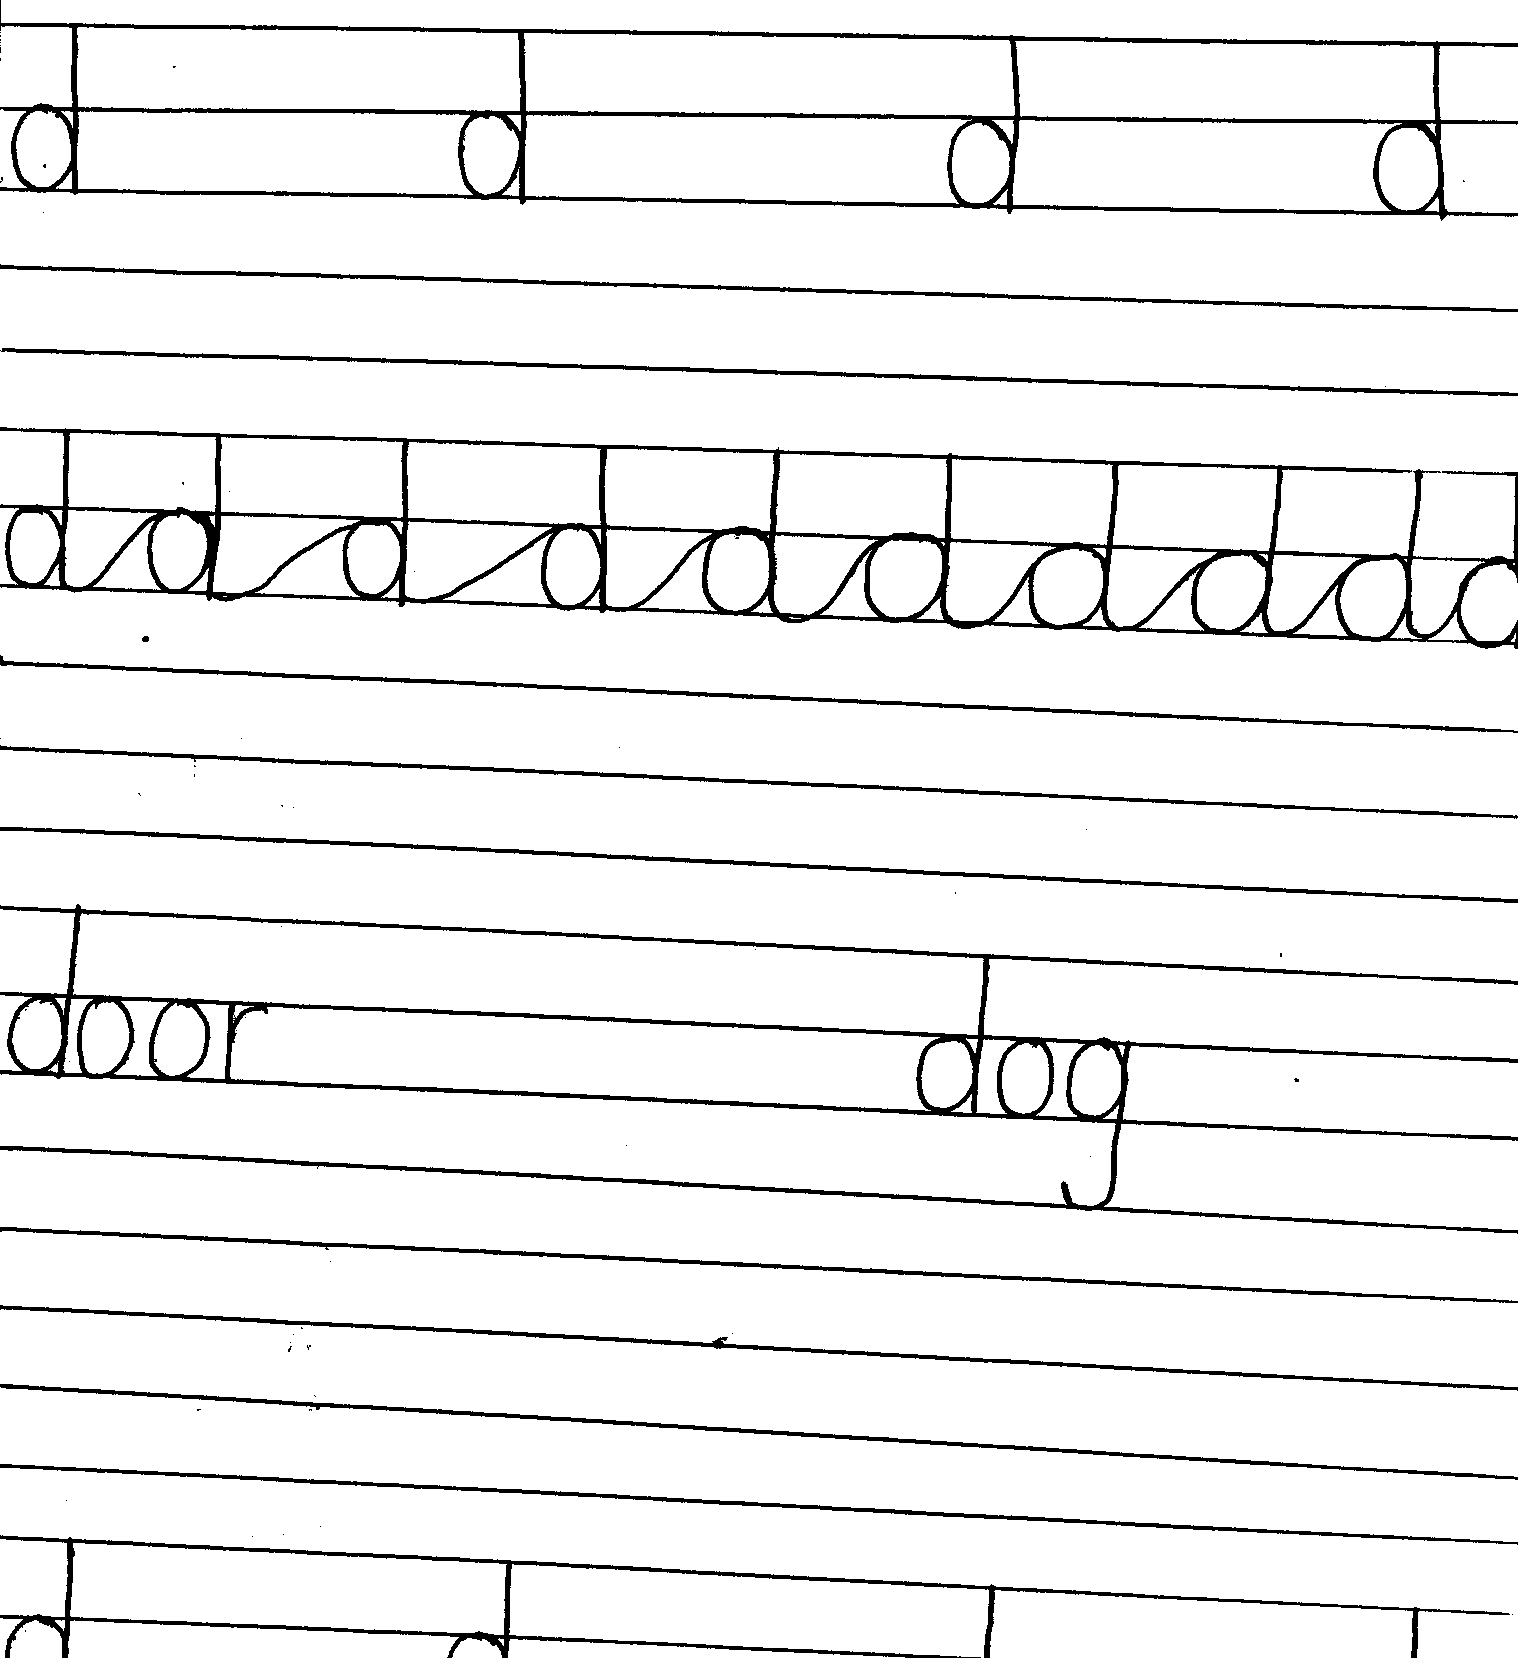 d d d d
dddddddddd
door dog
d d